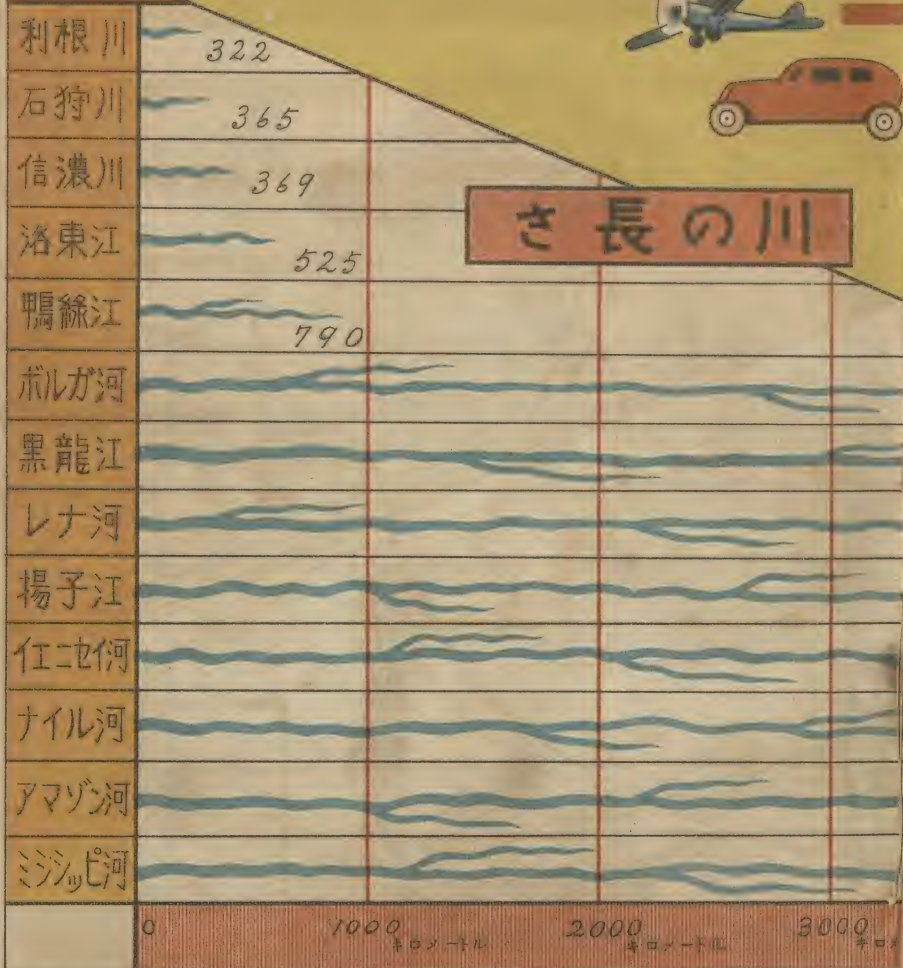 さ長の川
利根川 322
石狩川 365
信濃川 369
洛東江 525
鴨綠江 790
ボルガ河
黒龍江
レナ河
揚子江
イエニセイ河
ナイル河
アマゾン河
ミシシッピ河
0 1000キロメートル 2000キロメートル 3000キロメ